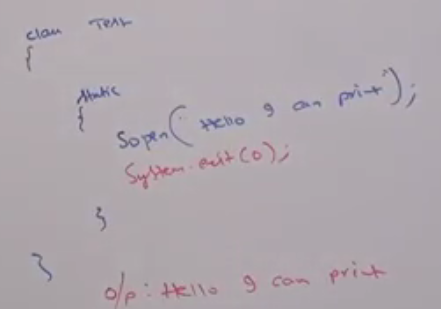 class Test
{
static
{
Sopln("Hello I can print");
System.exit(0);
}
}
o/p : Hello I can print